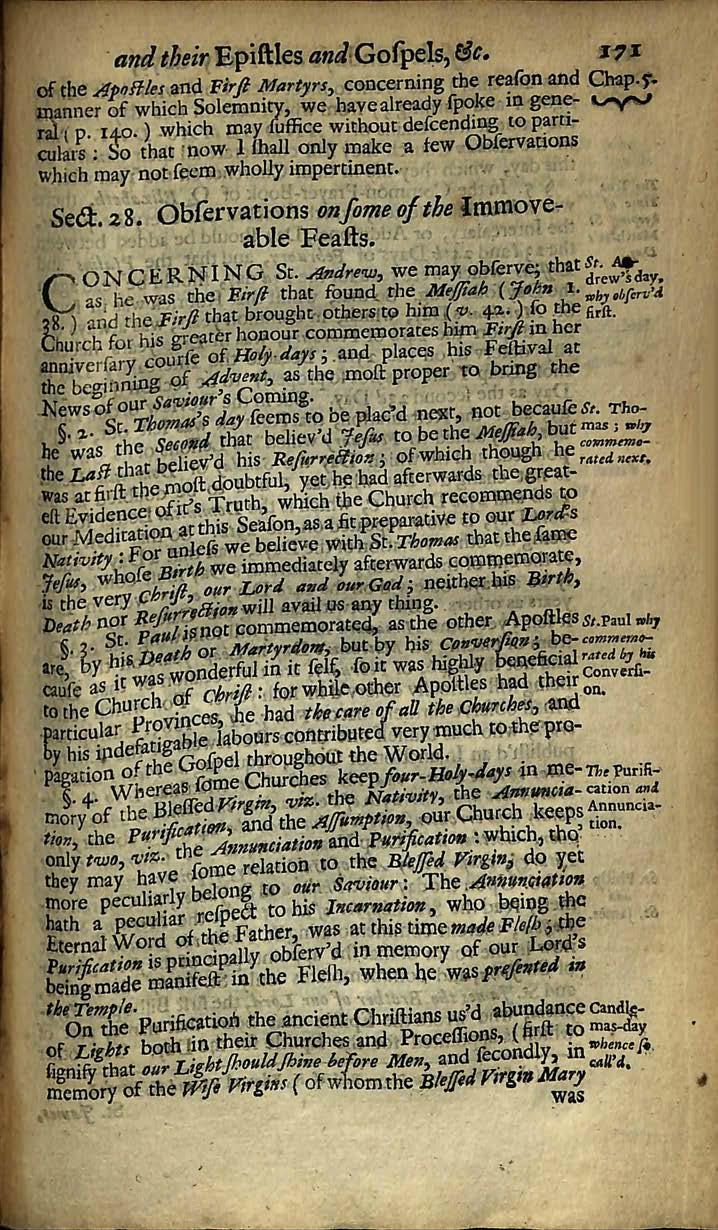 and their Epiſtles and Goſpels, &c. 171
of the Apoſtles and Firſt Martyrs, concerning the reaſon and Chap. 5.
manner of which Solemnity, we have already ſpoke in gene-
ral ( p. 140. ) which may ſuffice without deſcending to parti-
culars : So that now I ſhall only make a few Obſervations
which may not ſeem wholly impertinent.
Sect. 28. Obſervations on ſome of the Immove-
able Feaſts.
CONCERNING St. Andrew, we may obſerve; that St. An-
as he was the Firſt that found the Meſſiah ( John 1. drew's day,
38. ) and the Firſt that brought others to him ( v. 42. ) ſo the why obſerv'd
Church for his greater honour commemorates him Firſt in her firſt.
anniverſary courſe of Holy-days ; and places his Feſtival at
the beginning of Advent, as the moſt proper to bring the
News of our Saviour's Coming.
§. 2. St. Thomas's day ſeems to be plac'd next, not becauſe St. Tho-
he was the Second that believ'd Jeſus to be the Meſſiah, but mas ; why
the Laſt that believ'd his Reſurrection ; of which though he commemo-
was at firſt the moſt doubtful, yet he had afterwards the great- rated next.
eſt Evidence of it's Truth, which the Church recommends to
our Meditation at this Seaſon, as a fit preparative to our Lord's
Nativity : For unleſs we believe with St. Thomas that the ſame
Jeſus, whoſe Birth we immediately afterwards commemorate,
is the very Chriſt, our Lord and our God ; neither his Birth,
Death nor Reſurrection will avail us any thing.
§. 3. St. Paul is not commemorated, as the other Apoſtles St. Paul why
are, by his Death or Martyrdom, but by his Converſion ; be- commemo-
cauſe as it was wonderful in it ſelf, ſo it was highly beneficial rated by his
to the Church of Chriſt : for while other Apoſtles had their Converſi-
particular Provinces, he had the care of all the Churches, and on.
by his indefatigable labours contributed very much to the pro-
pagation of the Goſpel throughout the World.
§. 4. Whereas ſome Churches keep four-Holy-days in me- The Purifi-
mory of the Bleſſed Virgin, viz. the Nativity, the Annuncia- cation and
tion, the Purification, and the Aſſumption, our Church keeps Annuncia-
only two, viz. the Annunciation and Purification : which, tho' tion.
they may have ſome relation to the Bleſſed Virgin, do yet
more peculiarly belong to our Saviour : The Annunciation
hath a peculiar reſpect to his Incarnation, who being the
Eternal Word of the Father, was at this time made Fleſh ; the
Purification is principally obſerv'd in memory of our Lord's
being made manifeſt in the Fleſh, when he was preſented in
the Temple.
On the Purification the ancient Chriſtians us'd abundance Candle-
of Lights both in their Churches and Proceſſions, ( firſt to mas-day
ſignify that our Light ſhould ſhine before Men, and ſecondly, in whence ſo
memory of the Wiſe Virgins ( of whom the Bleſſed Virgin Mary call'd.
was